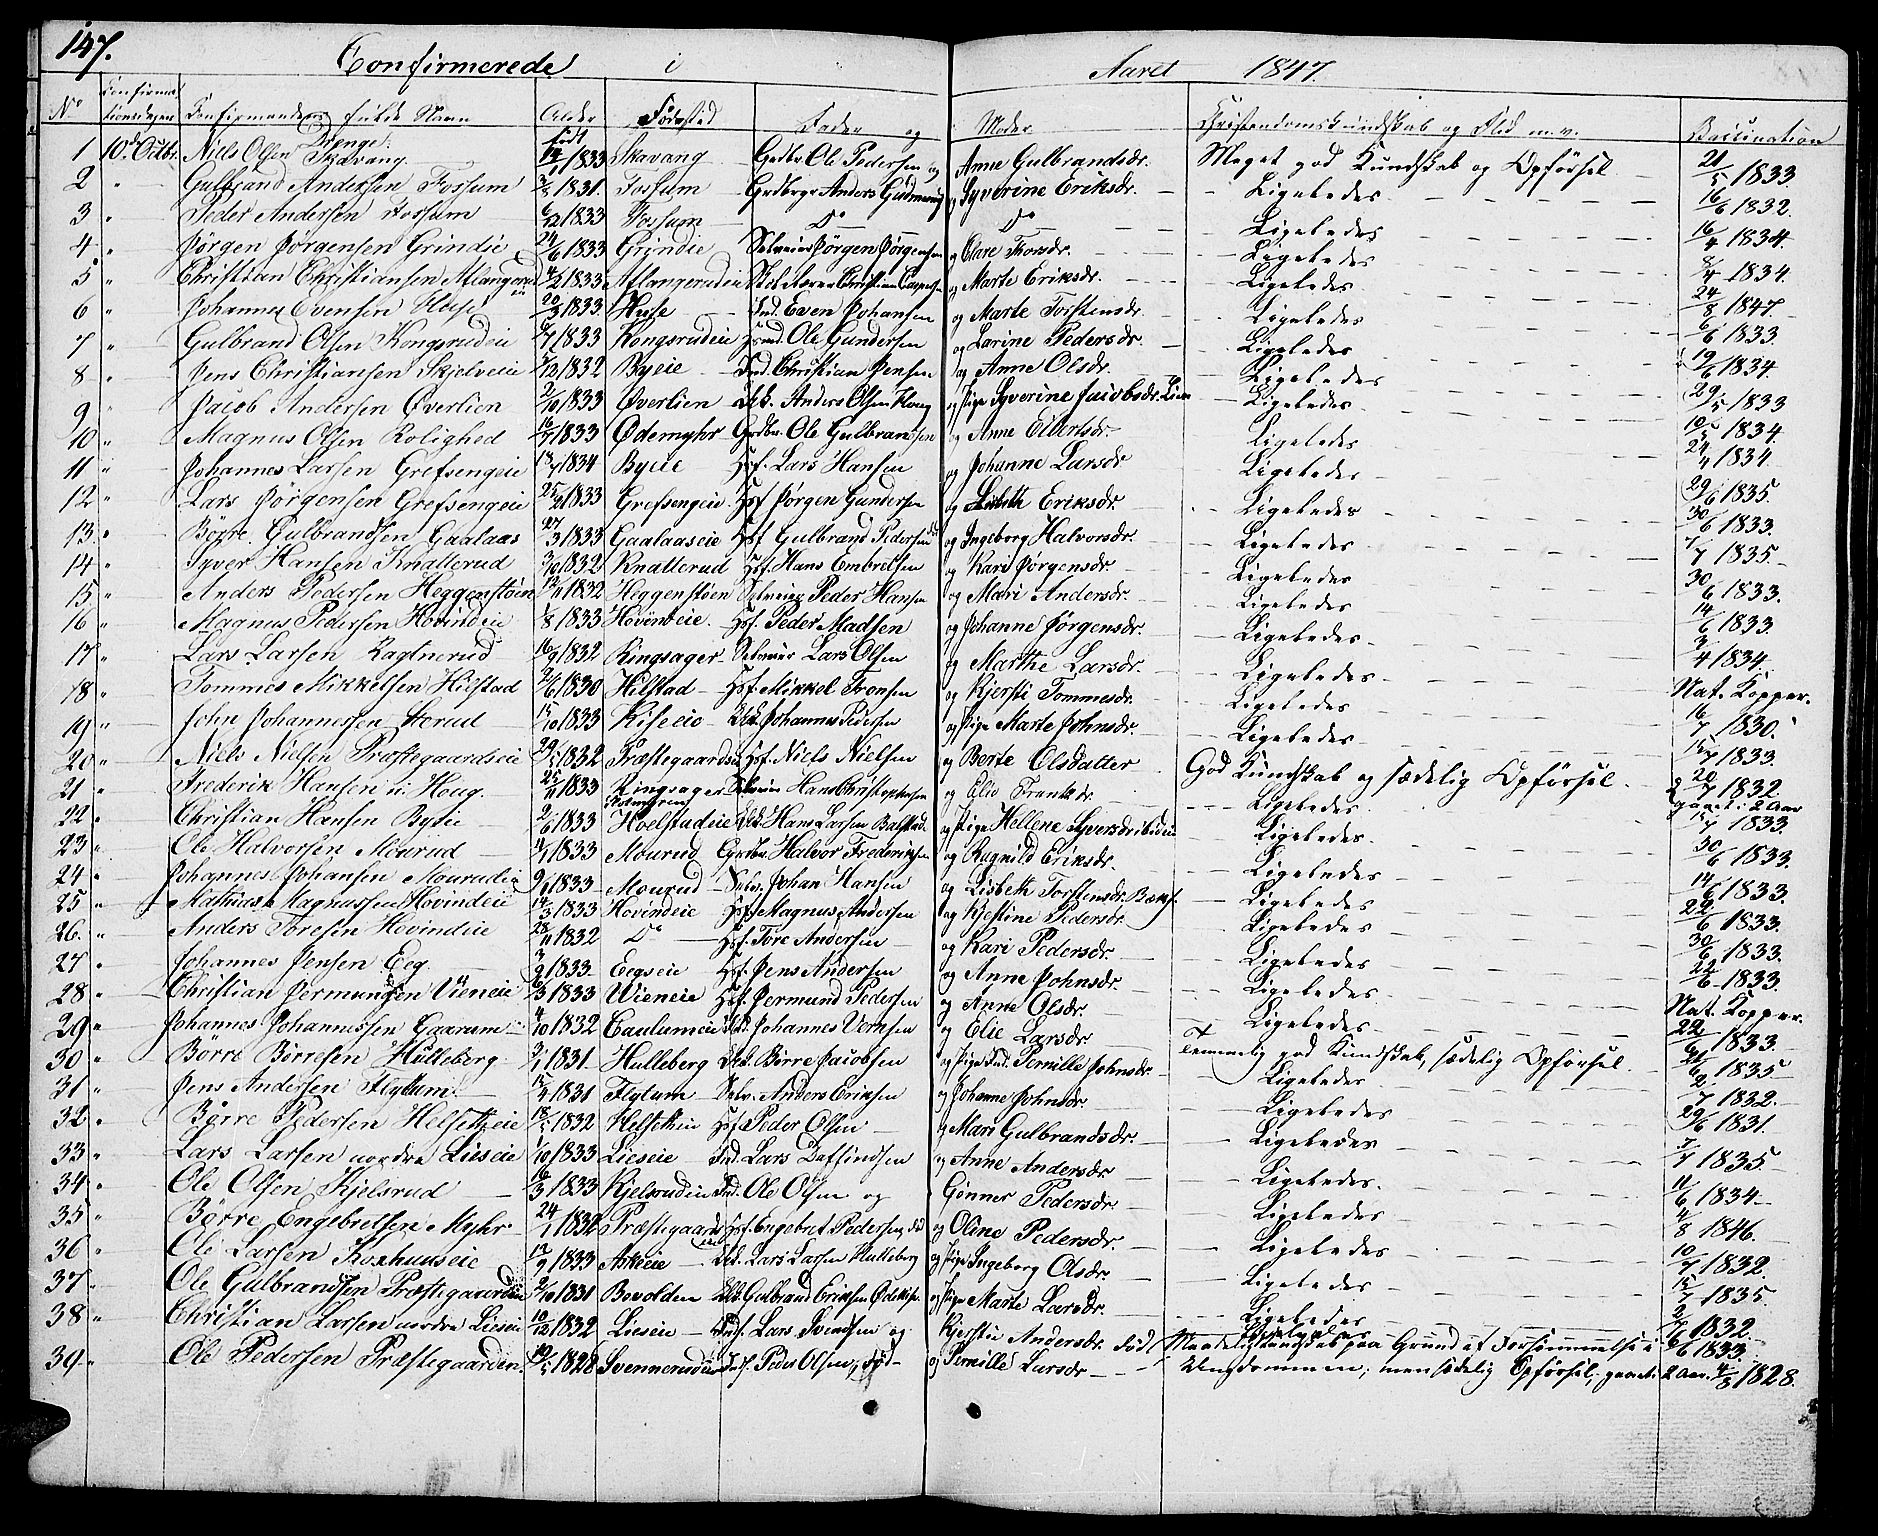 147.
Confirmerede i Aaret 1847.
No Confirmationsdagen Confirmandens fulde Navn Alder Fødested Fader og Moder Christendomskundskab og Flid m.v. Vaccination
Drenge. født
1 10de Octbr. Niels Olsen Skavang 1833 Skavang Grdbr. Ole Pedersen og Anne Gulbrandsdr. Meget god Kundskab og Opførsel 21/5 1833
2 " Gulbrand Andersen Fossum 1831. Fossum Grdbrgr Anders Gudmund og Syverine Eriksdr. Ligeledes 16/6 1832.
3 " Peder Andersen Fossum 6/12 1833 Fossum Do Do Ligeledes 16/4 1834.
4 " Jørgen Jørgensen Grindie 24/6 1833 Grindie Selveier Jørgen Jørgensen og Clare Thorsdr. Ligeledes 8/4 1834.
5 " Christian Christiansen Aslangerud 4/2 1833 Aslangerudeie Christian og Marte Eriksdr. Ligeledes 24/8 1847.
6 " Johannes Evensen Huse 20/3 1833. Huse Ind. Even Johansen og Marte Torstensdr. Ligeledes 6/6 1833.
7 " Gulbrand Olsen Kongsrudeie 1833 Kongsrudeie Ole Gundersen og Larine Pedersdr. Ligeledes 19/6 1834.
8 " Jens Christiansen Skjelveie 1832 Byeie Ind. Christian Jensen og Anne Olsdr. Ligeledes 29/5 1833
9 " Jacob Andersen Øverlien 2/10 1833 Øverlien Ulk. Anders Olsen og Pige Syverine Jacobsdr. Lien Ligeledes 1834.
10 " Magnus Olsen Rolighed 16/7 1833 Ødemyhr Grdbr. Ole Gulbransen og Anne Elbertsdr. Ligeledes 24/4 1834.
11 " Johannes Larsen Grefsengeie 1834 Byeie Hsf. Lars Hansen og Johanne Larsdr Ligeledes 29/6 1835.
12 " Lars Jørgensen Grefsengeie 25/2 1833 Grefsengeie Hsf Jørgen Gundersen og Lisbeth Eriksdr. Ligeledes 30/6 1833.
13 " Børre Gulbrandsen Gaalaas 27/3 1833 Gaalaaseie Hsf Gulbrand Pedersen og Ingeborg Halvorsdr. Ligeledes 7/7 1835.
14 " Syver Hansen Knatterud 3/10 1832 Knatterud Hsf. Hans Embretsen og Kari Jørgensdr. Ligeledes 30/6 1833.
15 " Anders Pedersen Heggenstøen 1832 Heggenstøen Selveier Peder Hansen og Mari Andersdr. Ligeledes 14/6 1833.
16 " Magnus Pedersen Hovindeie 1/8 1833 Hovindeie. Hsf. Peder Madsen og Johanne Jørgensdr. Ligeledes 3/4 1834.
17 " Lars Larsen Ragtnerud 16/9 1832 Ringsager Selveier Lars Olsen og Marthe Larsdr. Ligeledes Nat. Kopper.
18 " Tommes Mikkelsen Hilstad 2/6 1830 Hilstad Hsf Mikkel Tronsen og Kjersti Tommesdr. Ligeledes 16/7 1830.
19 " John Johannessen Storud 15/10 1833 Kiseeie Ulk. Johannes Pedersen og Pige Marte Johnsdr. Ligeledes 1833.
20 " Niels Nielsen Præstegaardseie 1832 Præstegaardseie Hsf. Niels Nielsen og Berte Olsdatter God Kundskab og sædelig Opførsel. 20/7 1832.
21 " Frederik Hansen Houg. 25/11 1833 Ringsager Selveier Hans Christophersen og Elie Ligeledes gaaet i 2 Aar 1833.
22 " Christian Hansen Byeie 2/6 1833 Hoelstadeie Ulk. Hans Larsen Balstad og Pige Hellene Syversdr. Ligeledes 30/6 1833.
23 " Ole Halvorsen Mourud 1833 Mourud Grdbr. Halvor Frederiksen og Ragnild Eriksdr. Ligeledes 14/6 1833.
24 " Johannes Johansen Mourudeie 1833 Mourud Selv. Johan Hansen og Lisbeth Torstensdr. Ligeledes 22/6 1833.
25 " Mathias Magnussen Hovindeie 14/3 1833 Hovindeie Hsf. Magnus Andersen og Kjestine Pedersdr. Ligeledes 30/6 1833.
26. " Anders Toresen Hovindeie 28/11 1832 Do Hsf. Tore Andersen og Kari Pedersdr. Ligeledes 22/6 1833.
27 " Johannes Jensen Eeg. 1833 Eegseie Hsf. Jens Andersen og Anne Johnsdr. Ligeledes Nat. Kopper.
28 " Christian Jermundsen Vieneie 6/3 1833 Wieneie Hsf. Jermund Pedersen og Anne Olsdr. Ligeledes 22/6 1833
29 " Johannes Johannessen Gaarum 4/10 1832 Caulumeie Johannes og Elie Larsdr. Temmelig god Kundskab, sædelig Opførsel. 1835
30 " Børre Børresen Hulleberg 3/1 1831. Hulleberg Ulk. Børre Jacobsen og Pige Pernille Johnsdr. Ligeledes 2/7 1832.
31 " Jens Andersen Flytum. 1831 Flytum Selv. Anders Eriksen og Johanne Johnsdr. Ligeledes 29/6 1831.
32 " Børre Pedersen Helsetheie 1832 Helsetheie Hsf Peder Olsen og Mari Gulbrandsdr. Ligeledes 7/7 1835.
33 " Lars Larsen nordre Lieseie 1/10 1833 Lieseie Ind. Lars Daffindsen og Anne Andersdr. Ligeledes 11/6 1834
34 " Ole Olsen Kjelsrud 16/3 1833 Kjelsrudeie Ind. Ole Olsen og Gønner Pedersdr. Ligeledes 4/8 1846.
35 " Børre Engebretsen Myhr 24/1 1832 Præstegaards Hsf. Engebret Pedersen og Oline Pedersdr. Ligeledes 10/7 1832.
36 " Ole Larsen Korshuuseie 12/9 1833 Askeeie Ulk. Lars Larsen Hulleberg og Pige Ingeborg Olsdr. Ligeledes 1835.
37 " Ole Gulbrandsen Præstegaarden 1831 Bovolden Ulk. Gulbrand Eriksen og Pige Marte Larsdr. Ligeledes 2/7 1832
38 " Christian Larsen nordre Lieseie 10/12 1832 Lieseie Lars Svendsen og Kjerstie Andersdr. Ligeledes 6/6 1833.
39 " Ole Pedersen Præstegaarden. 1828 Svennerudeie Peder Olsen, død og Pernille Larsdr død Maadelig Kundskab paa Grund af Forsømmelse i Ungdommen; men sædelig Opførsel; gaaet i 2 Aar. 4/8 1828.